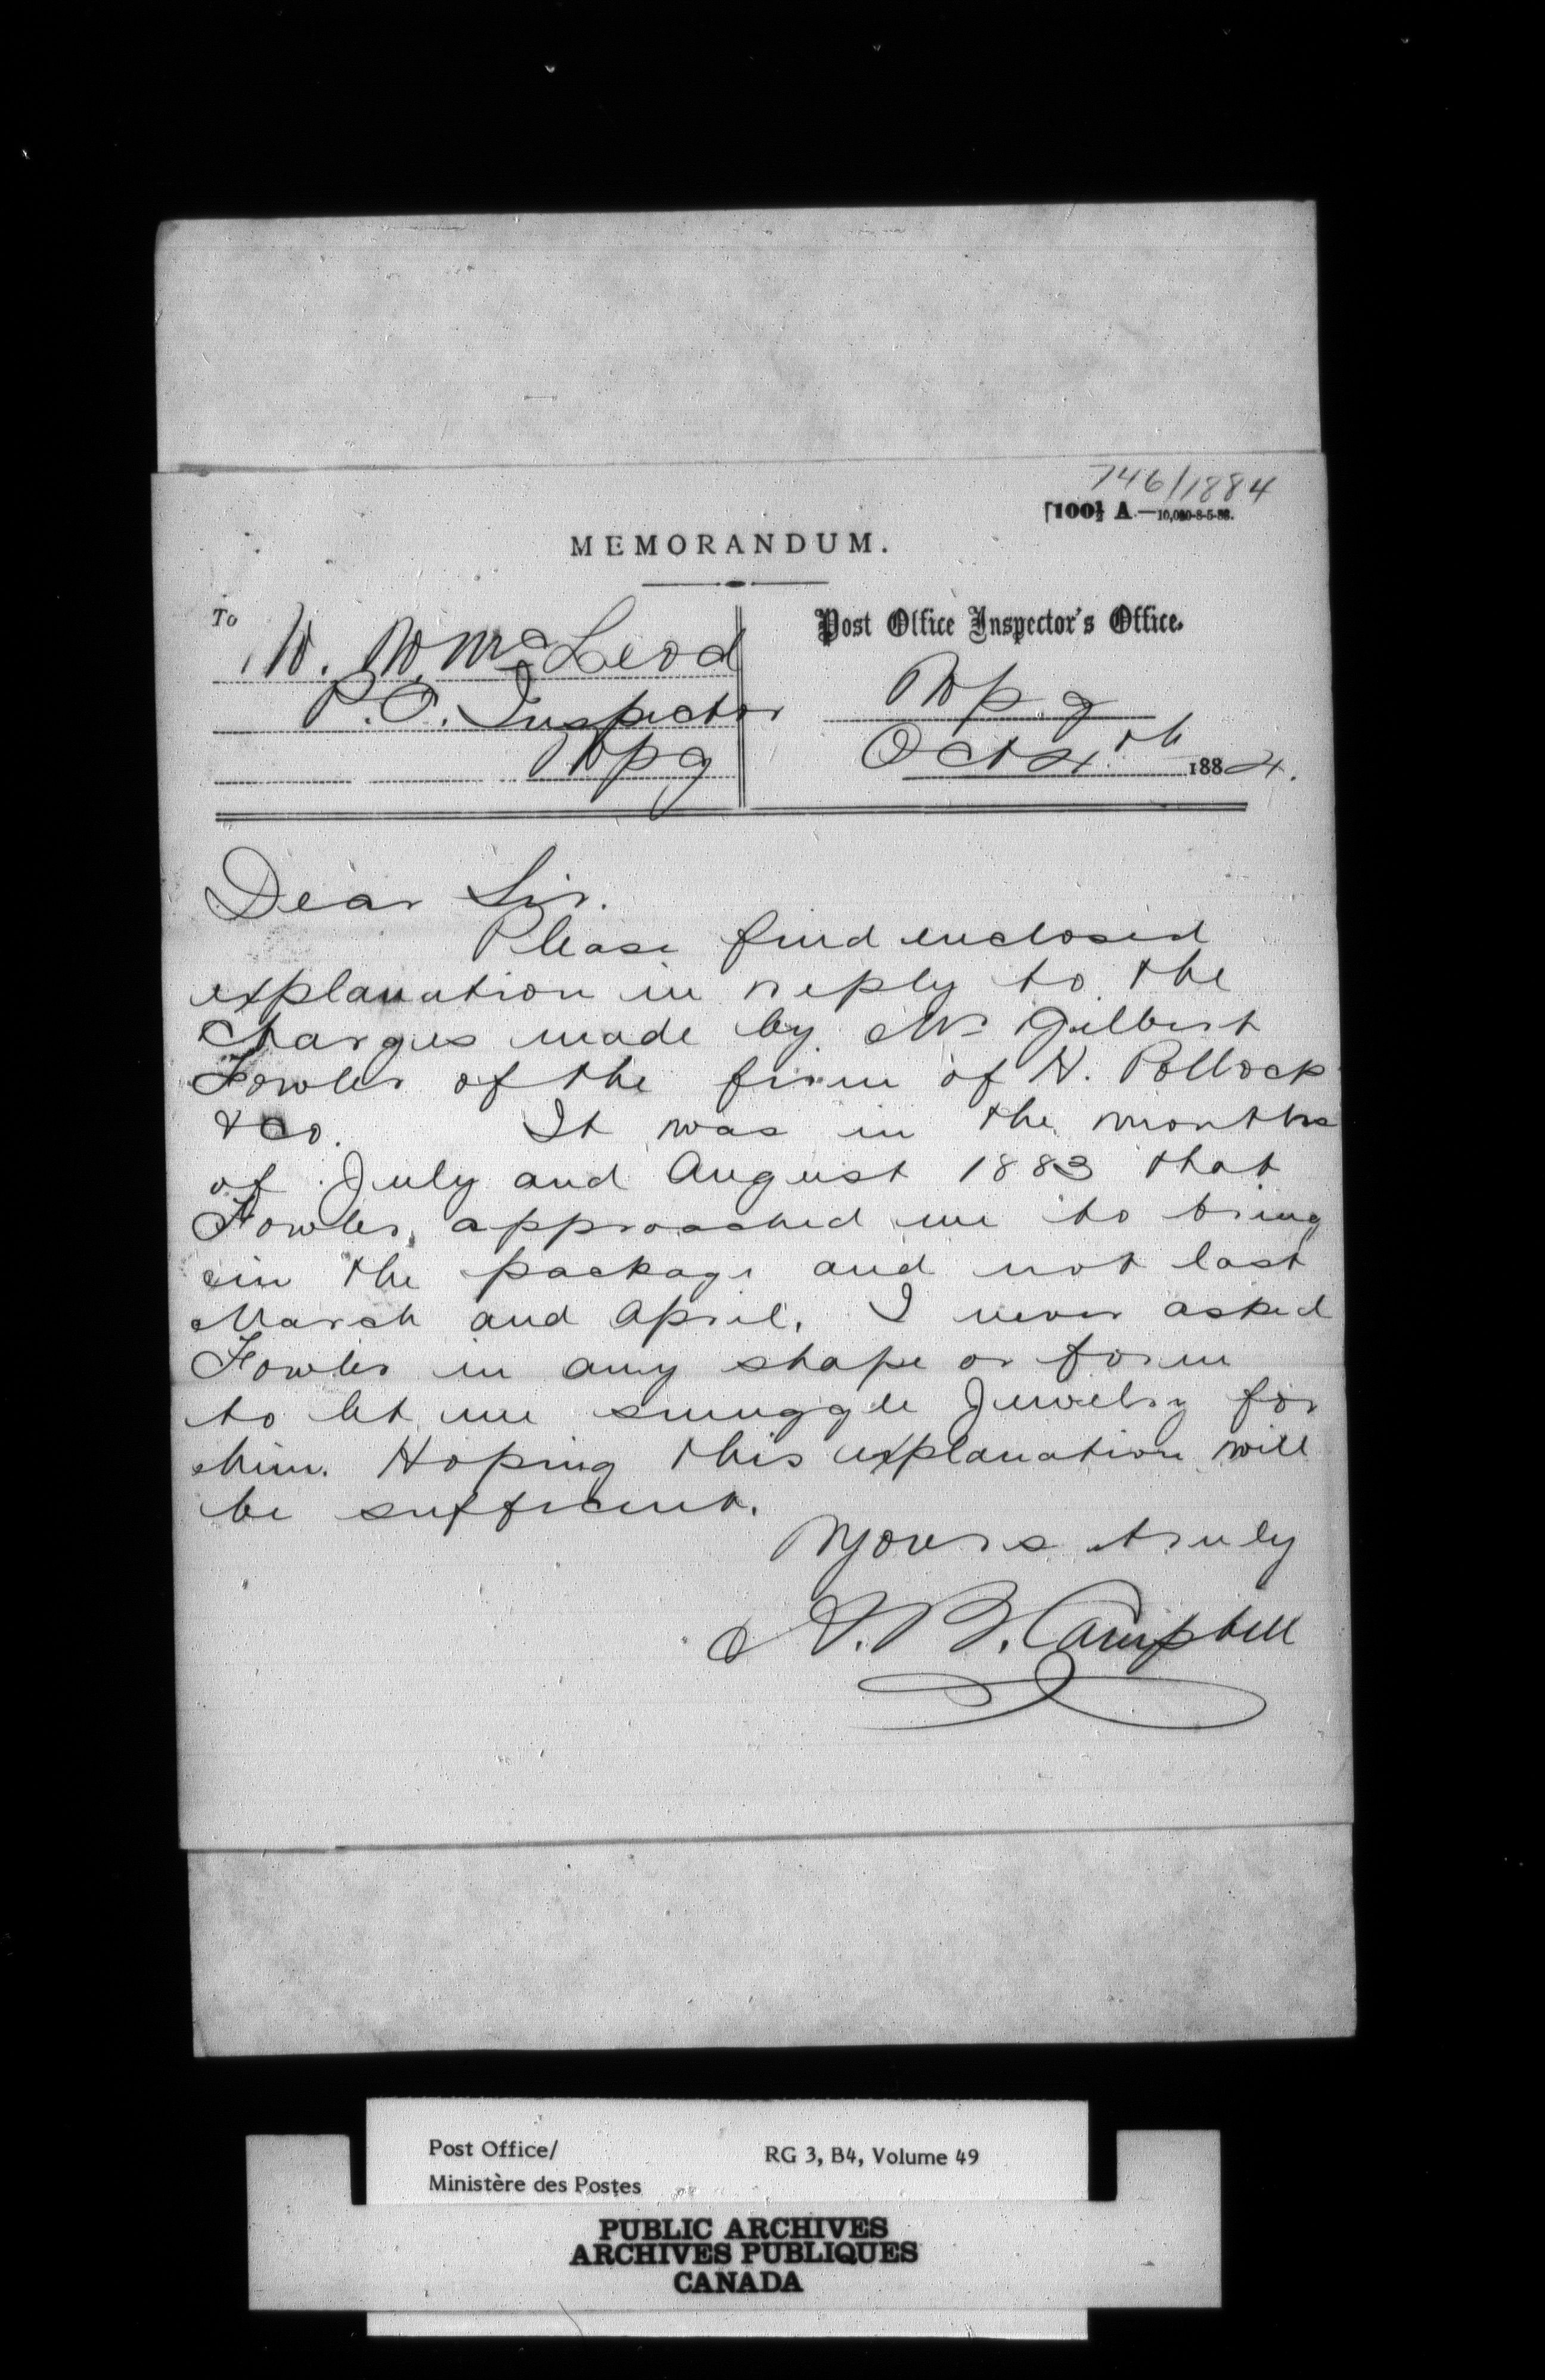 746/1884
[100½ A.—10,000-8-5-83.
MEMORANDUM.
To
W. W. McLeod
P.O. Inspector
Wpg
Post Office Inspector's Office.
Wpg
Oct 4th 1884.
Dear Sir.
Please find enclosed
explanation in reply to the
charges made by Mr Gilbert
Fowler of the firm of W. Pollock
& Co. It was in the months
of July and August 1883 that
Fowler, approached me to bring
in the package and not last
March and April. I never asked
Fowler in any shape or form
to let me smuggle Jewelry for
him. Hoping this explanation will
be sufficient.
Yours truly
A. B. Campbell
Post Office/
Ministère des Postes
RG 3, B4, Volume 49
PUBLIC ARCHIVES
ARCHIVES PUBLIQUES
CANADA